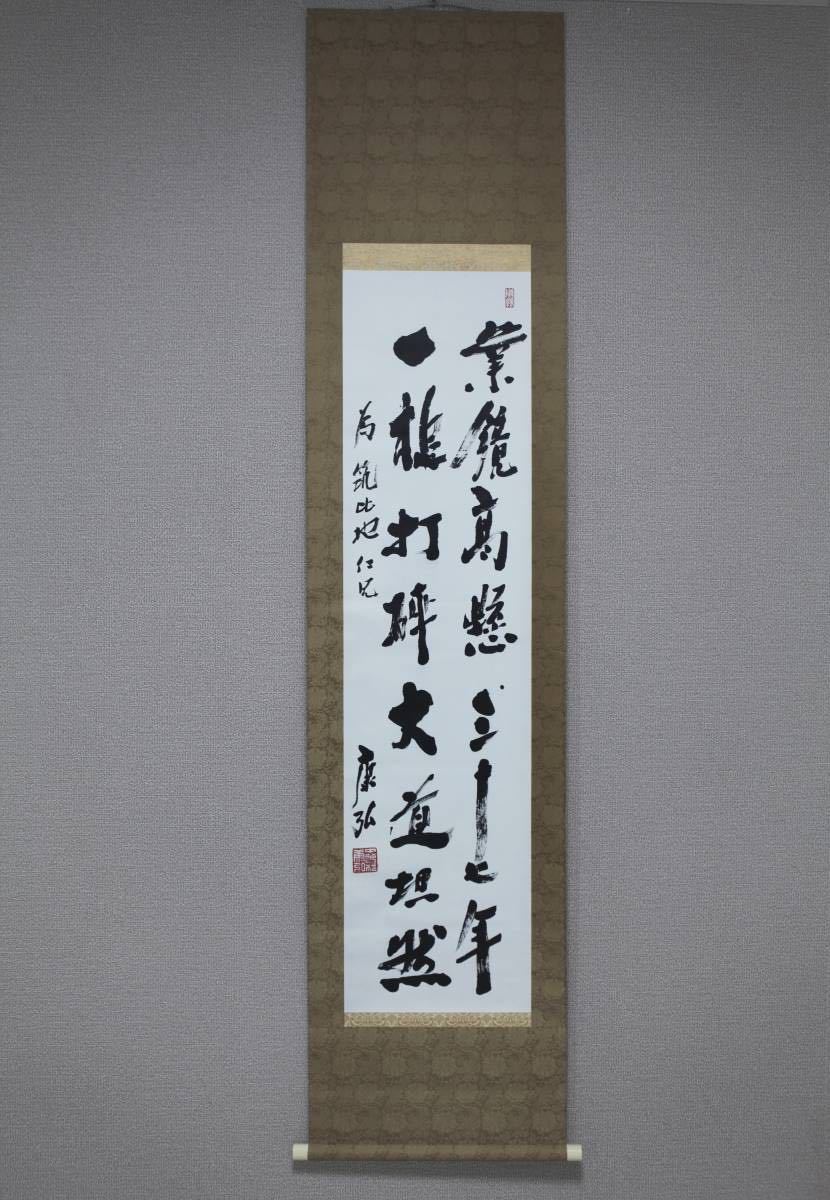 業鏡高懸三十七年
一槌打砕大道坦然
為筑比地仁兄
康弘